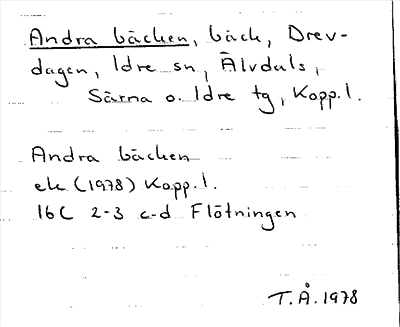 Andra bäcken, bäck, Drev-
dagen, Idre sn, Älvdals,
Särna o. Idre tg, Kopp.l.
Andra bäcken
ek (1978) Kopp.l.
16C 2-3 c-d Flötningen
T.Å.1978